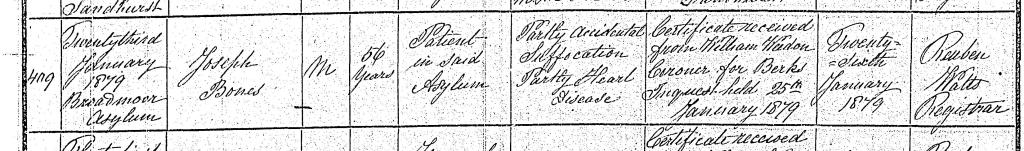 Sandhurst
409
Twentythird
January
1879
Broadmoor
Asylum
Joseph
Bones
M
56
Years
Patient
in said
Asylum
Partly Accidental
Suffocation
Partly Heart
Disease
Certificate received
from William Weedon
Coroner for Berks
Inquest held 25th
January 1879
Twenty=
=Sixth
January
1879
Reuben
Watts
Registrar
Certificate received